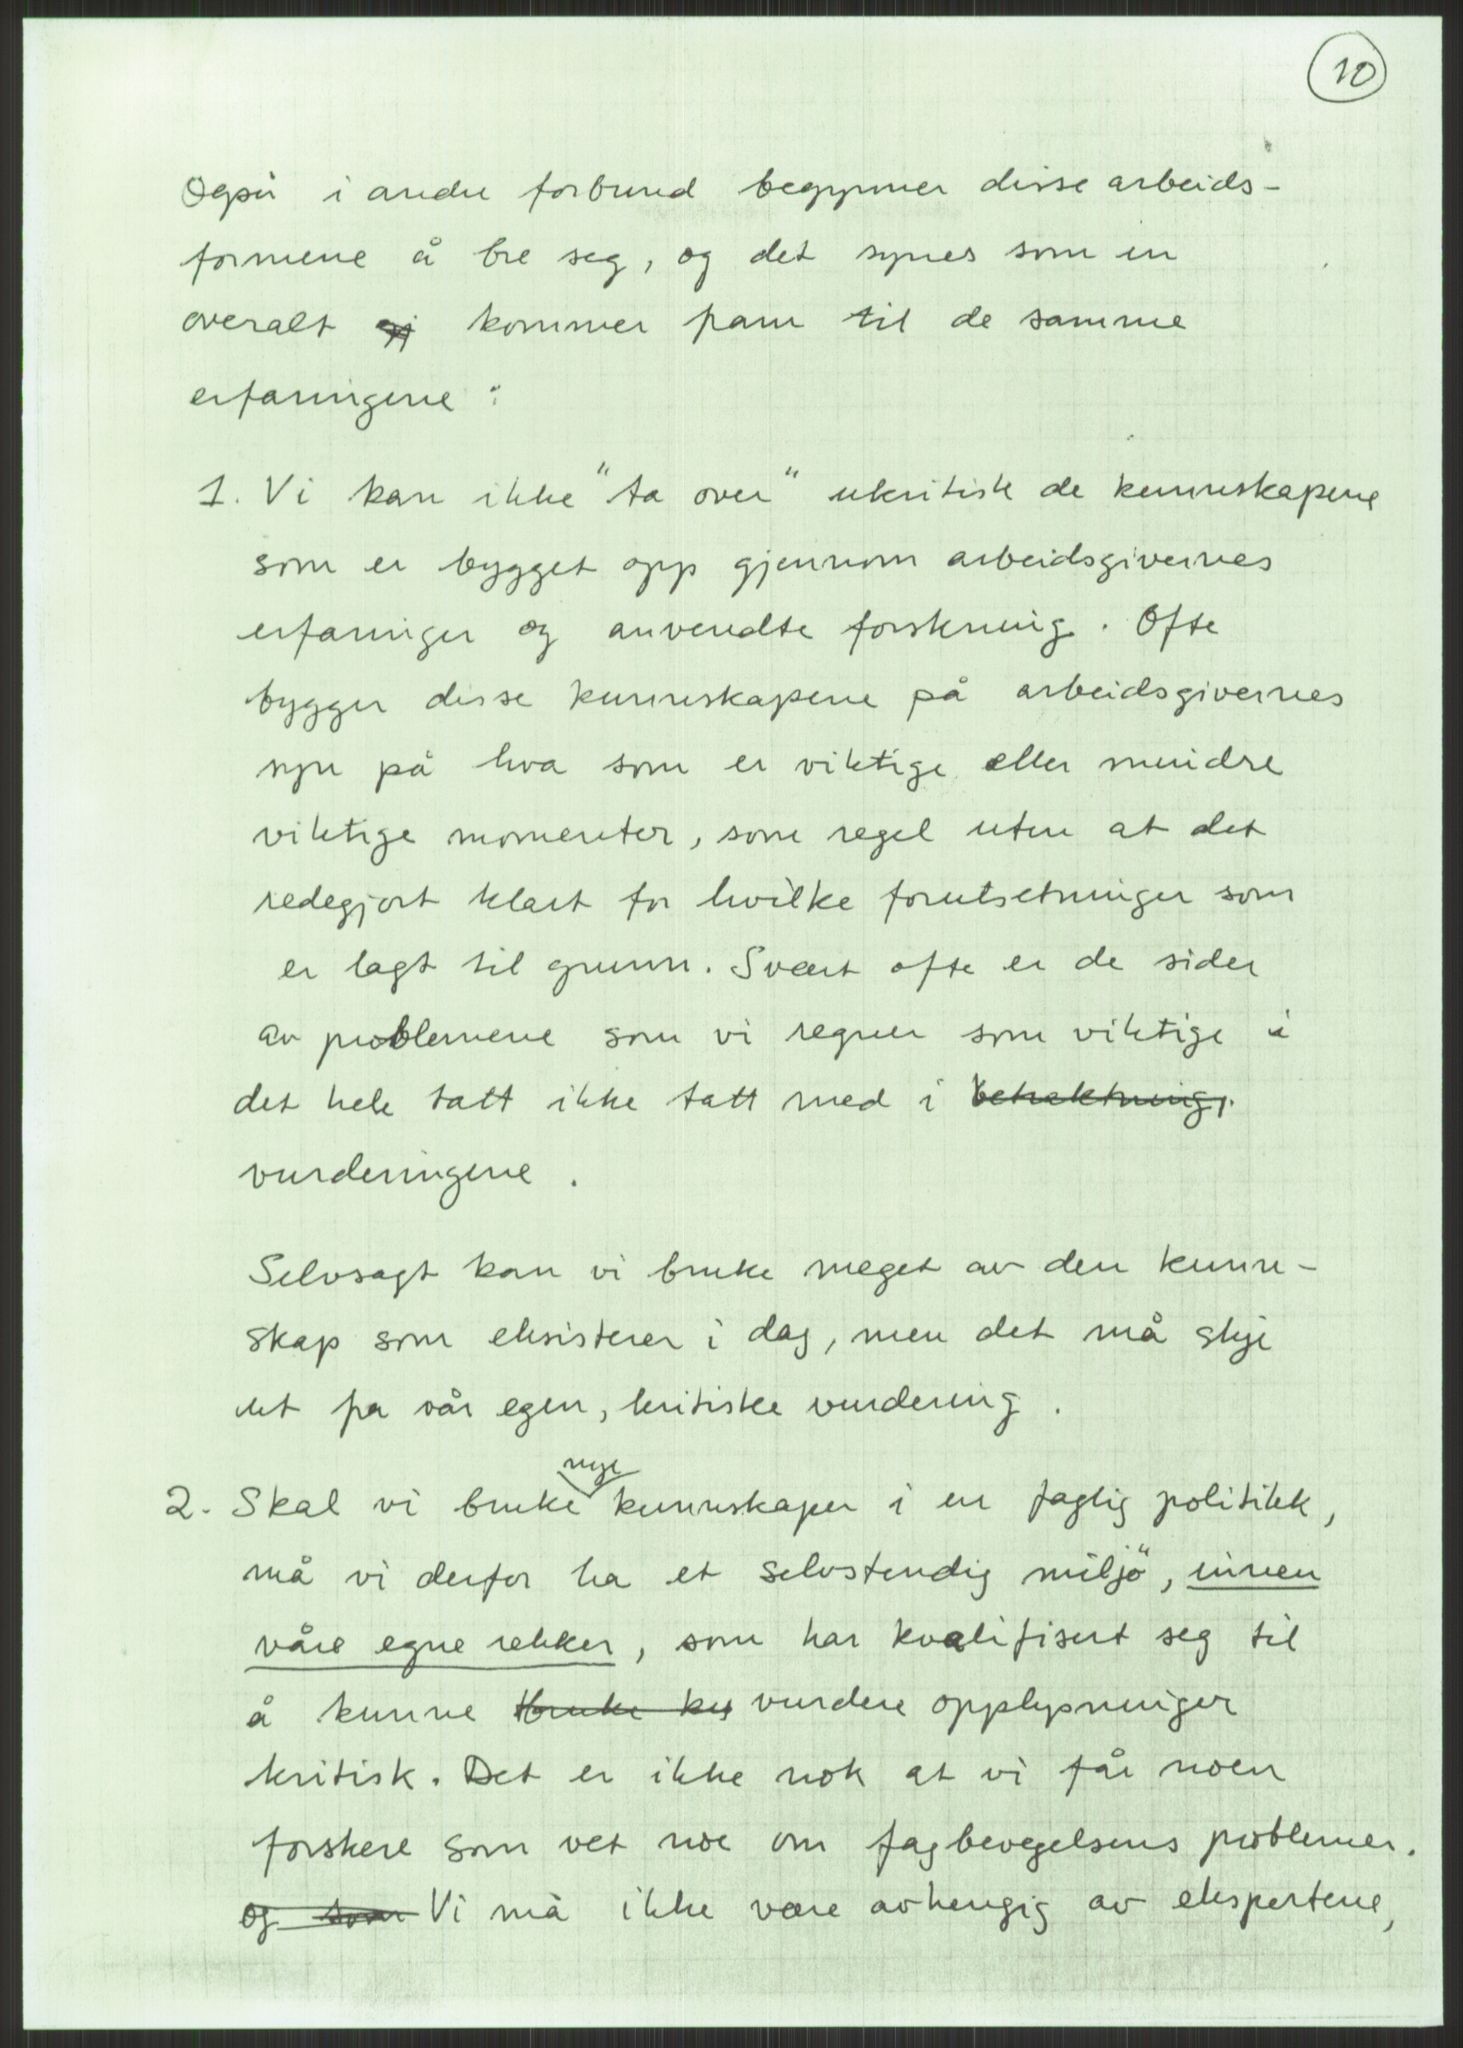 10
Også i andre forbund begynner disse arbeids-
formene å bre seg, og det synes som en
overalt kommer fram til de samme
erfaringene :
1. Vi kan ikke "ta over" ukritisk de kunnskapene
som er bygget opp gjennom arbeidsgivernes
erfaringer og anvendte forskning. Ofte
bygger disse kunnskapene på arbeidsgivernes
syn på hva som er viktige eller mindre
viktige momenter, som regel uten at det
redegjort klart for hvilke forutsetninger som
er lagt til grunn. Svært ofte er de sider
av problemene som vi regner som viktige i
det hele tatt ikke tatt med i betraktning,
vurderingene .
Selvsagt kan vi bruke meget av den kunn-
skap som eksisterer i dag, men det må skje
ut fra vår egen, kritiske vurdering .
nye
2. Skal vi bruke kunnskaper i en faglig politikk,
må vi derfor ha et selvstendig miljö, innen
våre egne rekker, som har kvalifisert seg til
å kunne bruke vurdere opplysninger
kritisk. Det er ikke nok at vi får noen
forskere som vet noe om fagbevegelsens problemer.
og som Vi må ikke være avhengig av ekspertene,